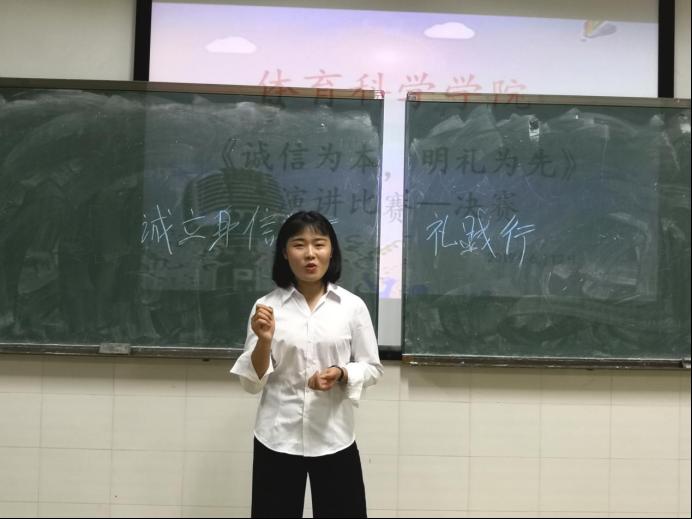 体育科学学院
《诚信为本，明礼为先》
演讲比赛—决赛
诚立身信
礼践行